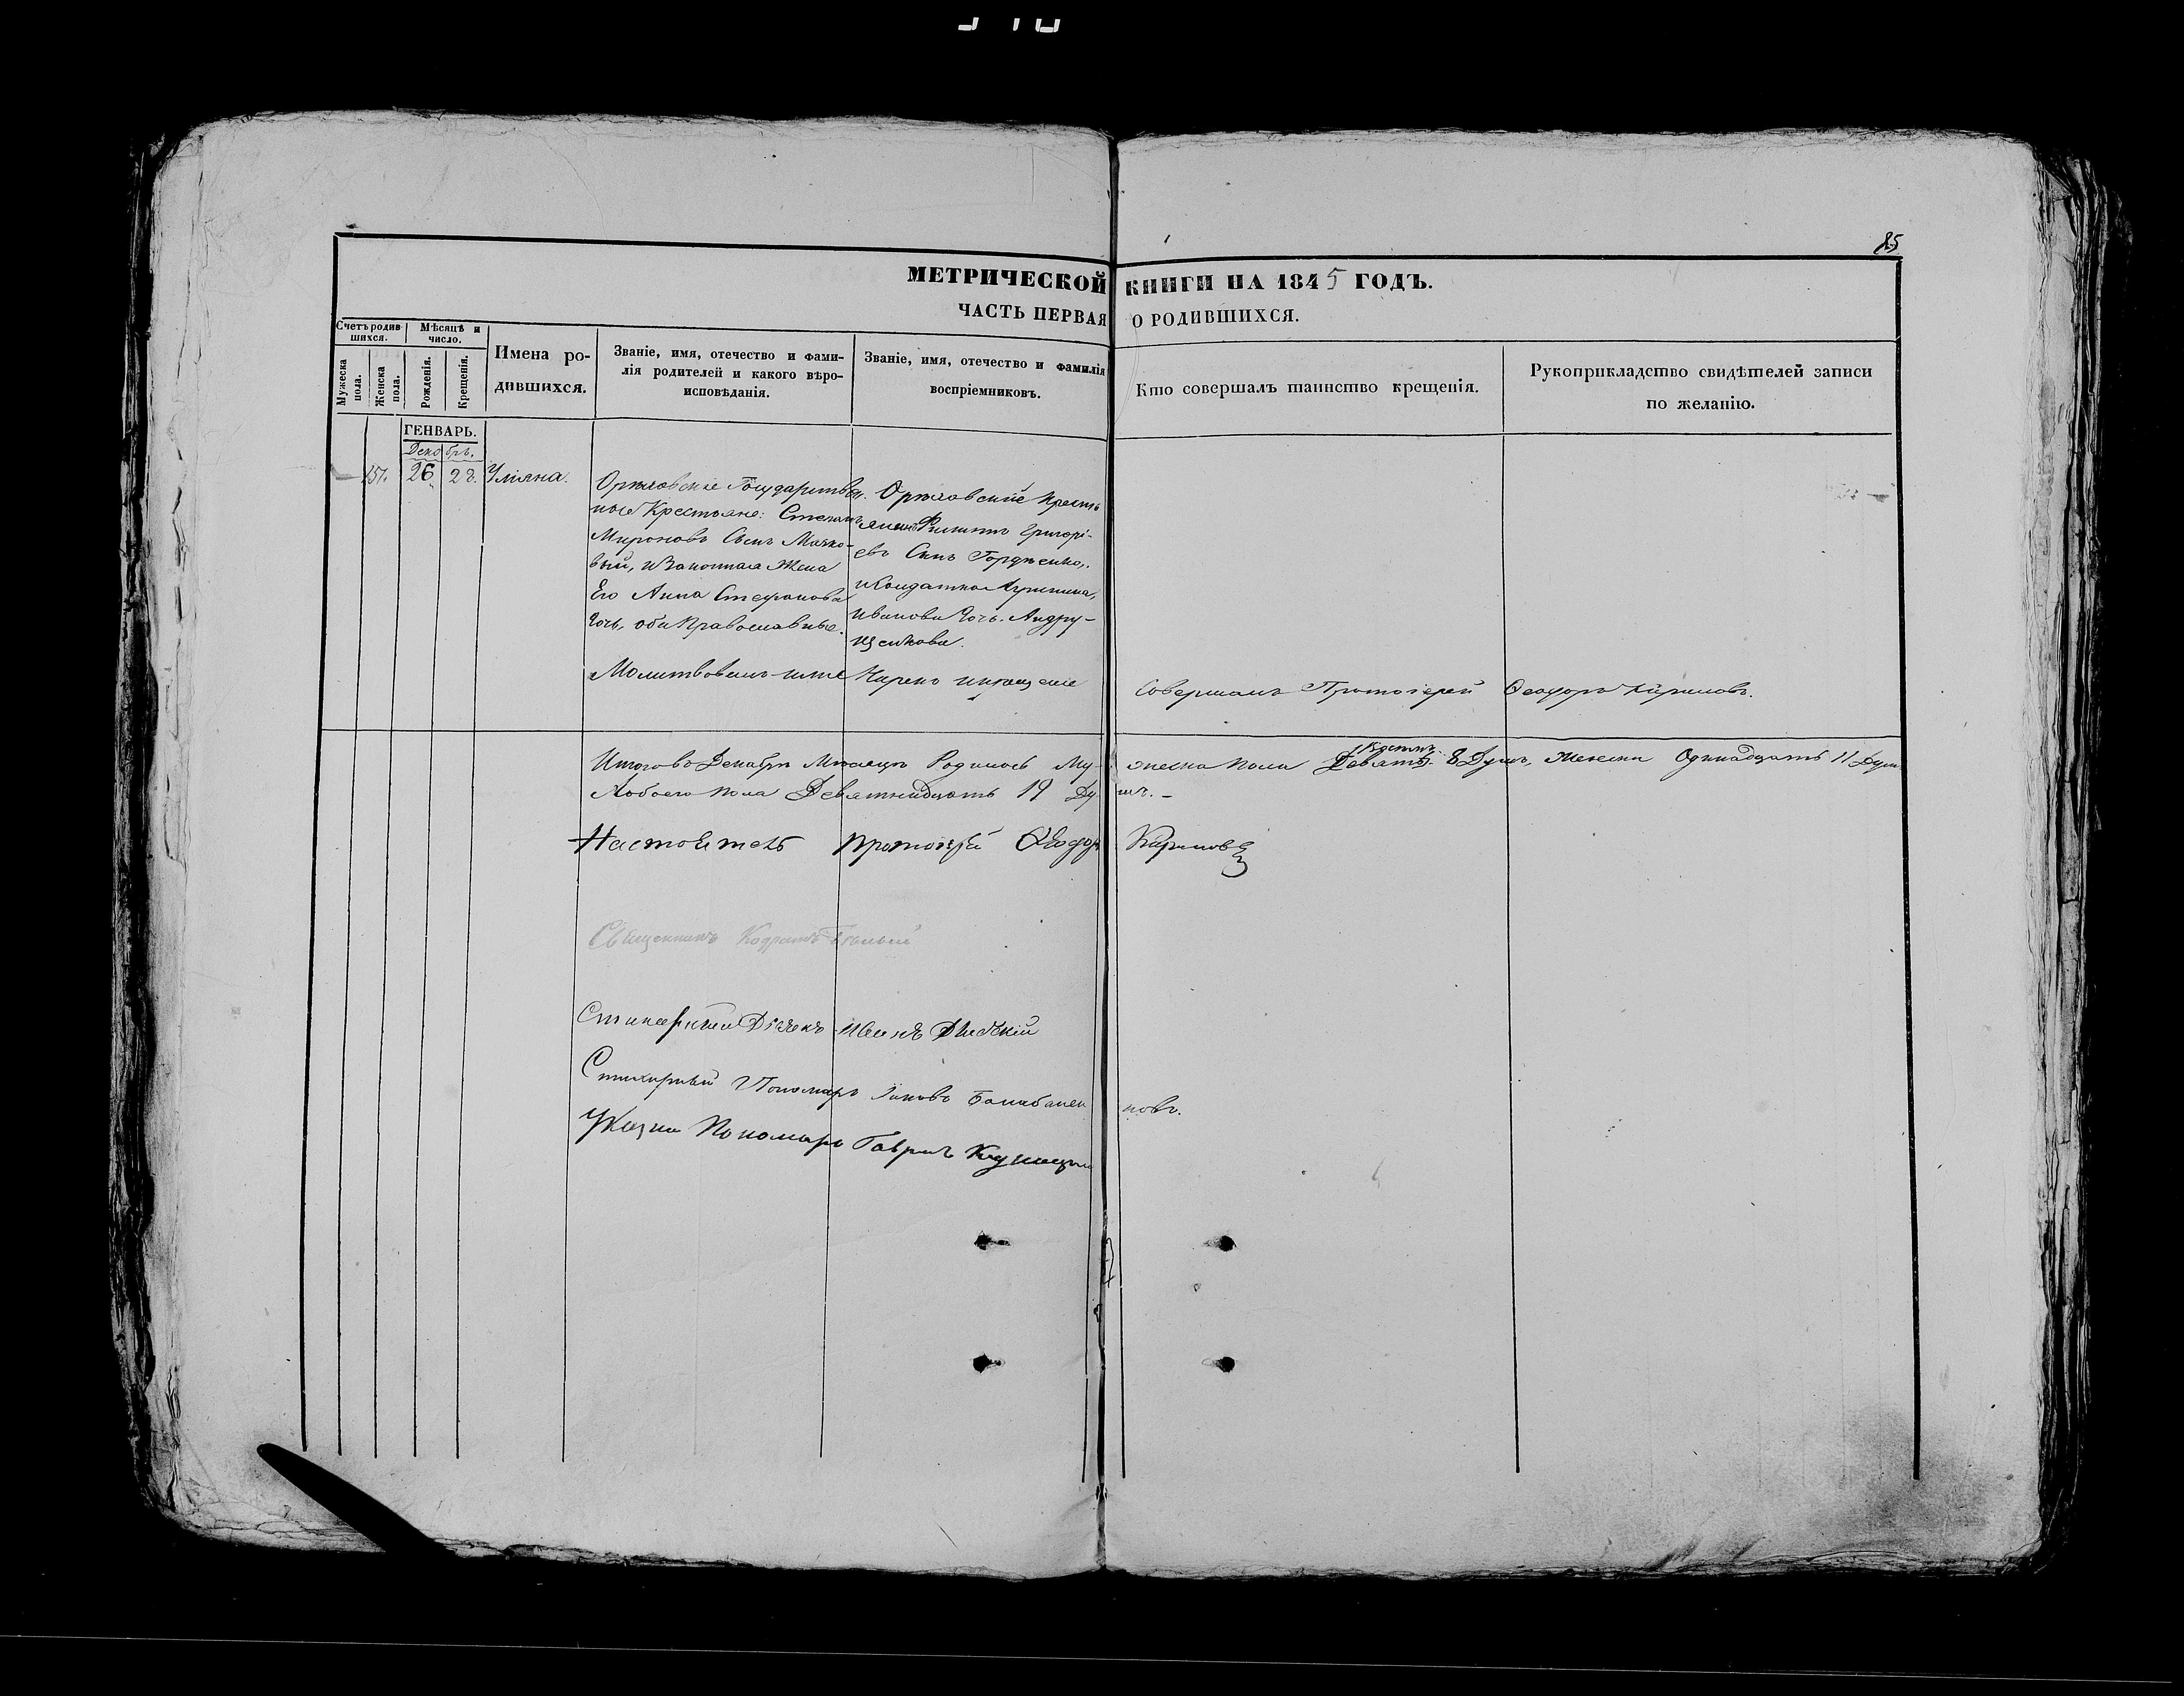 85
МЕТРИЧЕСКОЙ КНИГИ НА 1845 ГОДЪ.
ЧАСТЬ ПЕРВАЯ О РОДИВШИХСЯ.
Счетъ родив-
шихся.
Мѣсяцъ и
число.
Мужеска
пола.
Женска
пола.
Рожденія.
Крещенія.
Имена ро-
дившихся.
Званіе, имя, отечество и фами-
лія родителей и какого вѣро-
исповѣданія.
Званіе, имя, отечество и фамилія
воспріемниковъ.
Кто совершалъ таинство крещенія.
Рукоприкладство свидѣтелей записи
по желанію.
ГЕНВАРЬ.
Декабрь.
157. 26 28. Уліяна.
Орѣховскіе Государствен-
ные Крестьяне: Степанъ
Мироновъ Сынъ Мачко-
вый, и Законная Жена
Его Анна Стефанова
дочь, оба Православные.
Орѣховскіе Кресть
янинъ Филиппъ Григорі-
евъ Сынъ Гордѣенко,
и Солдатка
Иванова дочь. Андру-
щенкова.
Молитвовалъ имя Нарекъ и крещеніе
Совершалъ Протоіерей Феодоръ Кириловъ.
Итого въ Декабрѣ Мѣсяцѣ Родилось Му- жеска пола Восемь Девять 8 Душъ, Женска Одинадцать 11 Душ
Обоего пола Девятнадцать 19 Ду шъ. –
Настоятель протоіерей Феодоръ Кириловъ
Священникъ Кодратъ Бѣлый
Дьячекъ Иванъ
Стихарный Пономарь Іаковъ Балабанен ковъ.
Указный Пономарь Гавріилъ